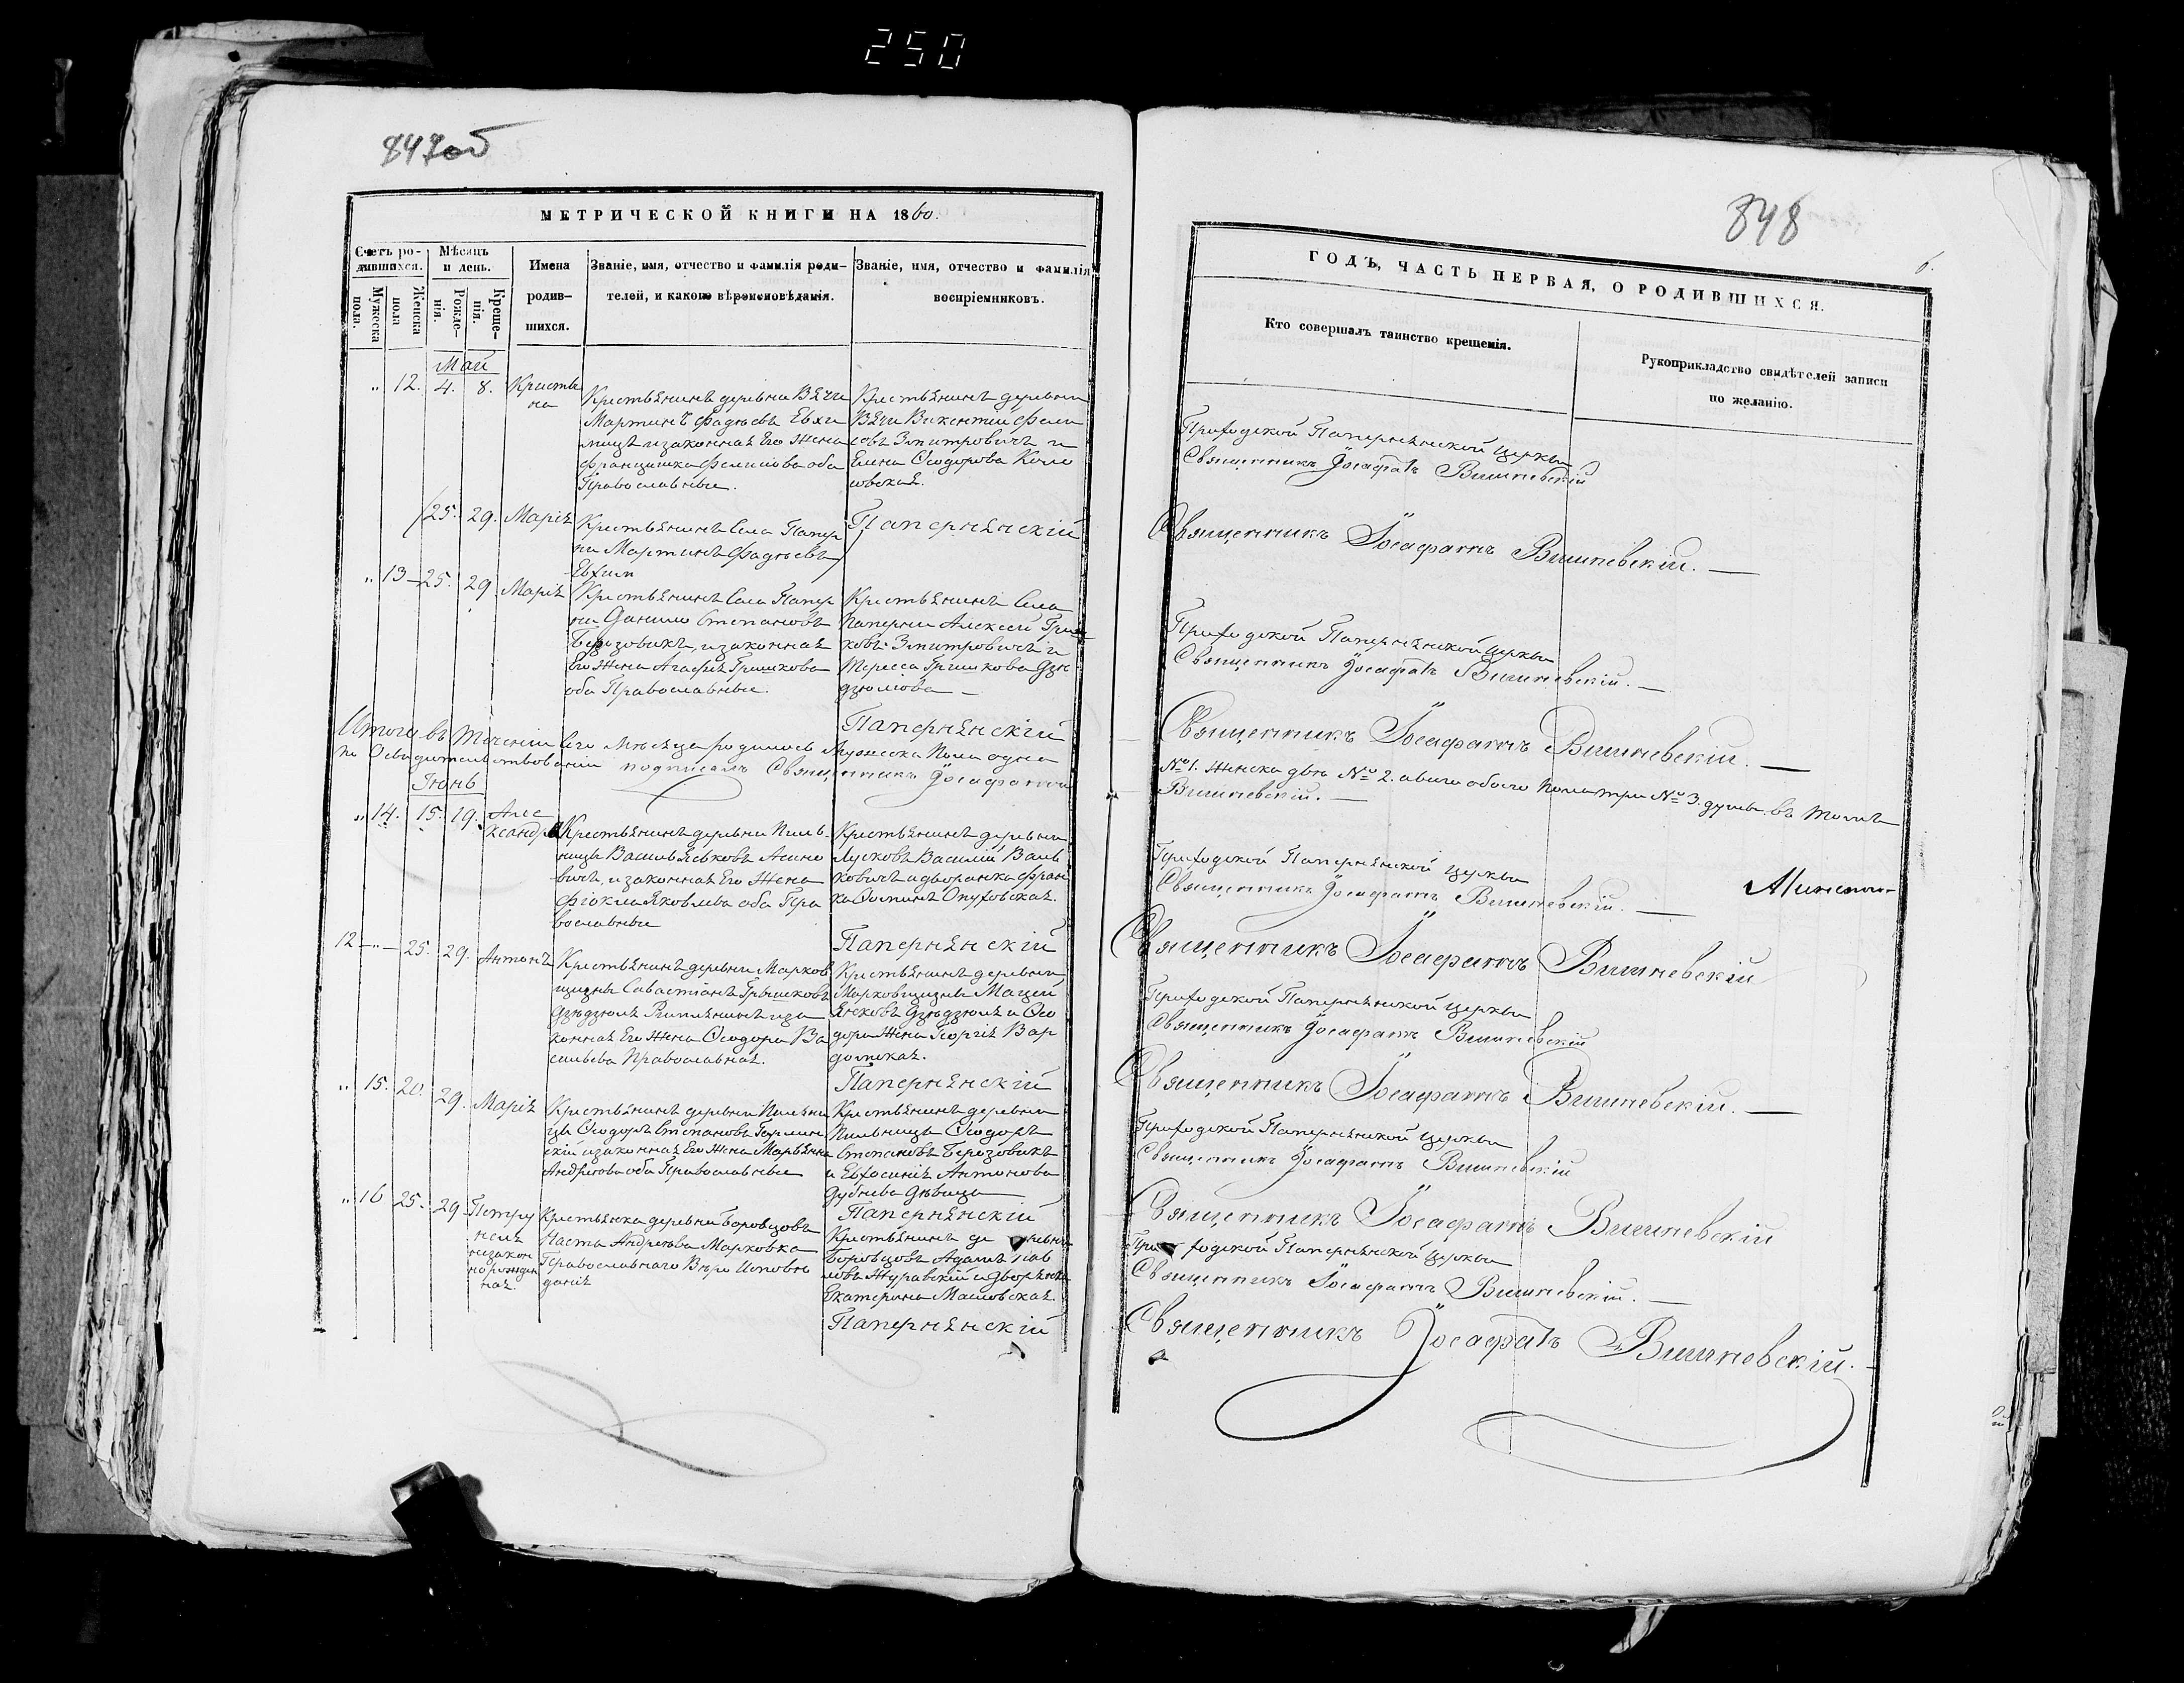 250
847об
МЕТРИЧЕСКОЙ КНИГИ НА 1860.
Счетъ ро-
дившихся.
Мѣсяцъ
и день.
Мужеска
пола.
Женска
пола
Рожде-
нія.
Креще-
нія.
Имена
родив-
шихся.
Званіе, имя, отчество и фамилія роди-
телей, и какого вѣроисповѣданія.
Званіе, имя, отчество и фамилія
воспріемниковъ.
Май
" 12. 4. 8. Кристы
на
Крестьянинъ деревни Вячи
Мартинъ Фадѣевъ Евхи
мицъ и законная Его Жена
Францишка Феликсова оба
Православные.
Крестьянинъ деревни
Вячи Викентий
Змитровичъ и
Елена Ѳеодорова
25. 29. Марія
Крестьянинъ Села Папер
ни Мартинъ Фадѣевъ
Евхим
Папернянскій
" 13 25. 29 Марія
Крестьянинъ Села Папер
ни Данило Степановъ
Березовикъ, и законная
Его Жена Агафія Гришкова
оба Православные.
Крестьянинъ Села
Паперни Алексей Гриш
ковъ Змитровичъ и
Тересса Гришкова Дзю
дзюлова
Папернянскій
Итого въ теченіи сего Мѣсяца родилось Мужеска Пола одна
По Освидѣтельствованіи подписалъ Священникъ Іосафатъ
Іюнь
" 14. 15. 19. Але
ксандра
Крестьянинъ деревни Пиль
ницы Василь Яськовъ Асино
вичъ, и законная Его Жена
Фіокла Яковлева оба Пра
вославные
Крестьянинъ деревни
Лусковъ Василій Вань
ковичъ и дворянка Фран
ка Опуховская.
Папернянскій
12 " 25. 29. Антонъ
Крестьянинъ деревни Марков
щизны Савастіанъ Грышковъ
Дзюдзюля Римлянинъ и за
конная Его Жена Ѳеодора Ва
сильева Православная.
Крестьянинъ деревни
Марковщизны Мацей
Янковъ Дзюдзюля и Ѳео
дора Жена Георгія Вар
Папернянскій
" 15. 20. 29. Марія
Крестьянинъ деревни Пильни
цы Ѳеодоръ Степановъ
скій и законная Его Жена Марьяна
Андреева оба Православные
Крестьянинъ деревни
Пильницы Ѳеодоръ
Степановъ Березовикъ
и Евфосинія Антонова
дѣвица
Папернянскій
" 16 25. 29 Петру
неля
незакон
норожден
ная.
Крестьянка деревни Боровцовъ
Наста Андреева Марковка
Православнаго Вѣро Исповѣ
данія
Крестьянинъ деревни
Боровцовъ Адамъ Пав
ловъ Журавскій и Дворянка
Екатерина Масловская.
Папернянскій
848
6.
ГОДЪ, ЧАСТЬ ПЕРВАЯ, О РОДИВШИХСЯ.
Кто совершалъ таинство крещенія.
Рукоприкладство свидѣтелей записи
по желанію.
Приходской Папернянской Церкви
Священникъ Іосафатъ Вишневскій
Священникъ Іосафатъ Вишневскій.
Приходской Папернянской Церкви
Священникъ Іосафатъ Вишневскій.
Священникъ Іосафатъ Вишневскій.
№ 1. Женска двѣ № 2. а всего обоего пола три № 3. души. въ томъ
Вишневскій.
Приходской Папернянской Церкви
Священникъ Іосафатъ Вишневскій.
Священникъ Іосафатъ Вишневскій
Приходской Папернянской Церкви
Священникъ Іосафатъ Вишневскій
Священникъ Іосафатъ Вишневскій.
Приходской Папернянской Церкви
Священникъ Іосафатъ Вишневскій
Священникъ Іосафатъ Вишневскій
Приходской Папернянской Церкви
Священникъ Іосафатъ Вишневскій.
Священникъ Іосафатъ Вишневскій.